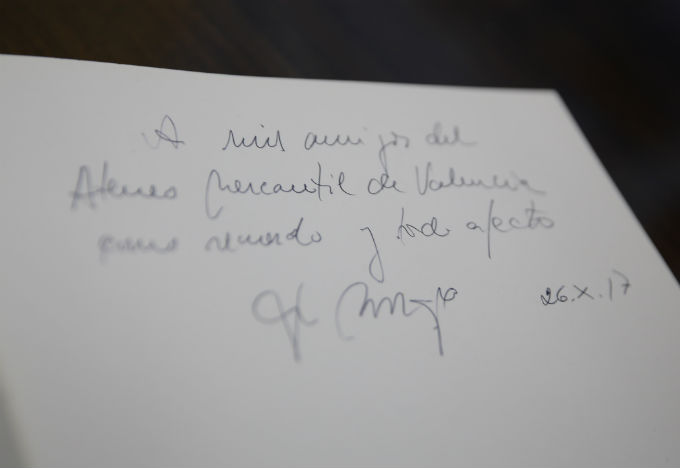 A mis amigos del
Ateneo Mercantil de Valencia
como recuerdo y todo afecto
26.X.17